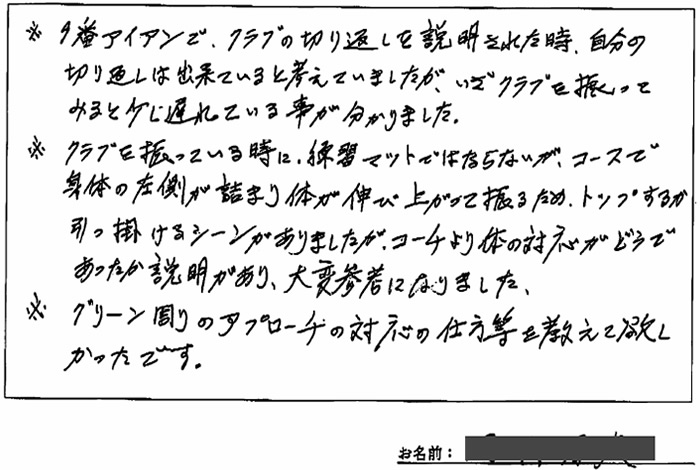 ※ 9番アイアンで、クラブの切り返しを説明された時、自分の
切り返しは出来ていると考えていましたが、いざクラブを振って
みると少し遅れている事が分かりました。
※ クラブを振っている時に、練習マットではならないが、コースで
身体の左側が詰まり体が伸び上がって振るため、トップするか
引っ掛けるシーンがありましたが、コーチより体の対応がどうで
あったか説明があり、大変参考になりました、
※ グリーン周りのアプローチの対応の仕方等を教えて欲し
かったです。
お名前：